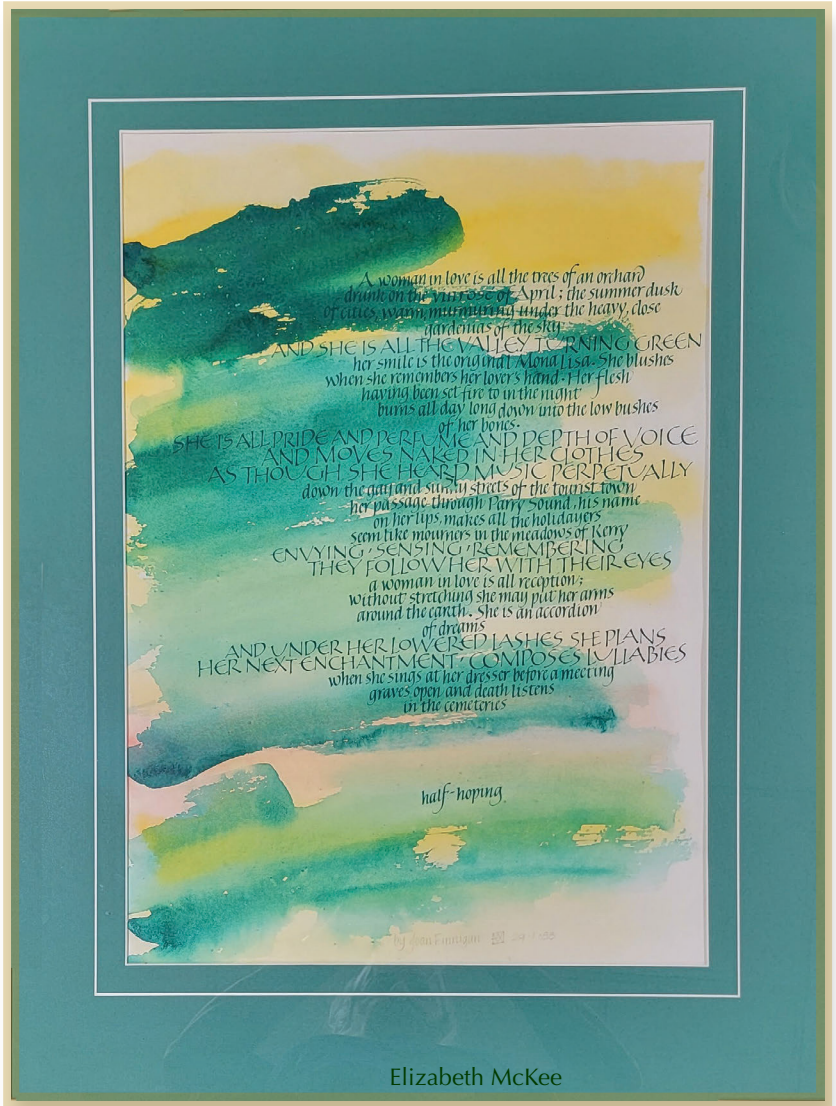 A woman in love is all the trees of an orchard
drunk on the virtrose of April; the summer dusk
of cities, warm, murmuring under the heavy, close
gardenias of the sky
AND SHE IS ALL THE VALLEY TURNING GREEN
her smile is the original Mona Lisa. She blushes
when she remembers her lover's hand. Her flesh
having been set fire to in the night
burns all day long down into the low bushes
of her bones.
SHE IS ALL PRIDE AND PERFUME AND DEPTH OF VOICE
AND MOVES NAKED IN HER CLOTHES
AS THOUGH SHE HEARD MUSIC PERPETUALLY
down the gay and sunny streets of the tourist town
her passage through Parry Sound, his name
on her lips, makes all the holidayers
seem like mourners in the meadows of Kerry
ENVYING, SENSING, REMEMBERING
THEY FOLLOW HER WITH THEIR EYES
a woman in love is all reception;
without stretching she may put her arms
around the earth. She is an accordion
of dreams
AND UNDER HER LOWERED LASHES SHE PLANS
HER NEXT ENCHANTMENT, COMPOSES LULLABIES
when she sings at her dresser before a meeting
graves open and death listens
in the cemeteries
half-hoping
by Joan Finnigan
Elizabeth McKee